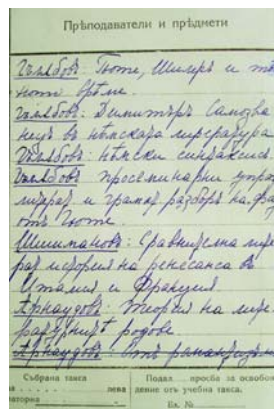 Прѣподаватели и прѣдмети
Гълѫбовъ: Гьоте, Шилеръ и тѣх
ното врѣме.
Гълѫбовъ: Димитъръ Самозва
нецъ въ нѣмската литература
Гълѫбовъ: нѣмски синтаксисъ.
Гълѫбовъ просеминарни упра
литерат и грамат разборъ на фа
отъ Гьоте.
Шишмановъ: Сравнителна лите
рат история на ренесанса въ
Италия и Франция
Арнаудовъ: теория на лите
ратурнитѣ родове.
Арнаудовъ: отъ романтизъм
Събрана такса
лева
Подал просба за освобож
дение отъ учебна такса.
Вх. №